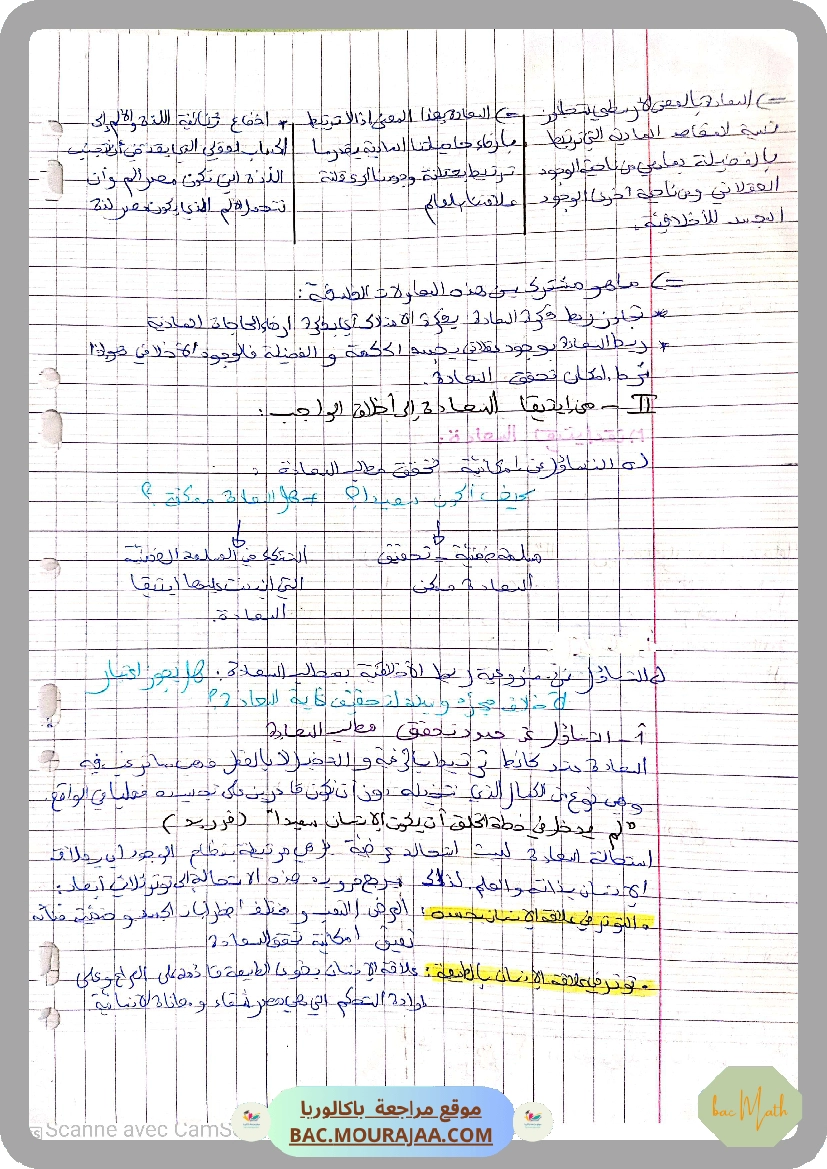 => السعادة بالمعنى الأرسطي تتجاوز
نسبة لمقاصد المادية التي ترتبط
بالفضيلة بما هي من ناحية الوجود
العقلاني ومن ناحية أخرى الوجود
المجسد للأخلاقية.
=> السعادة بهذا المعنى إذا لا ترتبط
بإرضاء حاجياتنا المادية بقدر ما
ترتبط بعقلنة وجودنا أي عقلنة
علاقتنا بالعالم
* اخضاع ثنائية اللذة والألم إلى
الحساب العقلي التي يقتضي أن نتجنب
اللذة اين تكون مصدر ألم وأن
نتحمل الألم الذي يكون مصدر لذة
=> ما هو مشترك بين هذه المقاولات الفلسفية:
* تجاوز ربط فكرة السعادة بفكرة الامتلاك أي بفكرة ارضاء الحاجات المادية
* ربط السعادة بوجود عقلاني يجسد الحكمة و الفضيلة فالوجود الأخلاقي هو إذا
شرط امكان تحقق السعادة.
II - من إيتيقا السعادة إلى أخلاق الواجب:
1) إيتيقا السعادة.
التساؤل عن إمكانية تحقق مطلب السعادة:
كيف أكون سعيدا؟ هل السعادة ممكنة؟
مسلمة ضمنية = تحقيق
السعادة ممكن
التفكير في المسلمة الضمنية
التي انبنت عليها ايتيقا
السعادة.
التساؤل عن مشروعية ربط الأخلاقية بمطلب السعادة: هل يجوز اعتبار
الأخلاق مجرد وسيلة لتحقيق غاية السعادة؟
أ - التساؤل عن حدود تحقق مطلب السعادة
السعادة عند كانط ترتبط بالرغبة و التخيل لا بالعقل فهي ما نرغب فيه
وهي نوع من الكمال الذي نتخيله دون أن نكون قادرين على تجسيده فعليا في الواقع.
"لم يدخل في خطة الخلق أن يكون الإنسان سعيدا" (فرويد)
استحالة السعادة ليست استحالة عرضية بل هي مرتبطة بنظام الوجود أي بعلاقة
الإنسان بذاته والعالم. لذلك يرجع فرويد هذه الاستحالة إلى توتر ثلاثي أبعاد:
• التوتر في علاقة الإنسان بجسده: المرض التعب و مختلف اضطرابات الجسد و حتمية فنائه
تعيق امكانية تحقق السعادة
• توتر في علاقة الإنسان بالطبيعة: علاقة الإنسان بالطبيعة قائمة على الصراع وعلى
إرادة التحكم التي هي مصدر شقاء و معاناة الإنسانية
موقع مراجعة باكالوريا
BAC.MOURAJAA.COM
bac Math
Scanne avec CamS